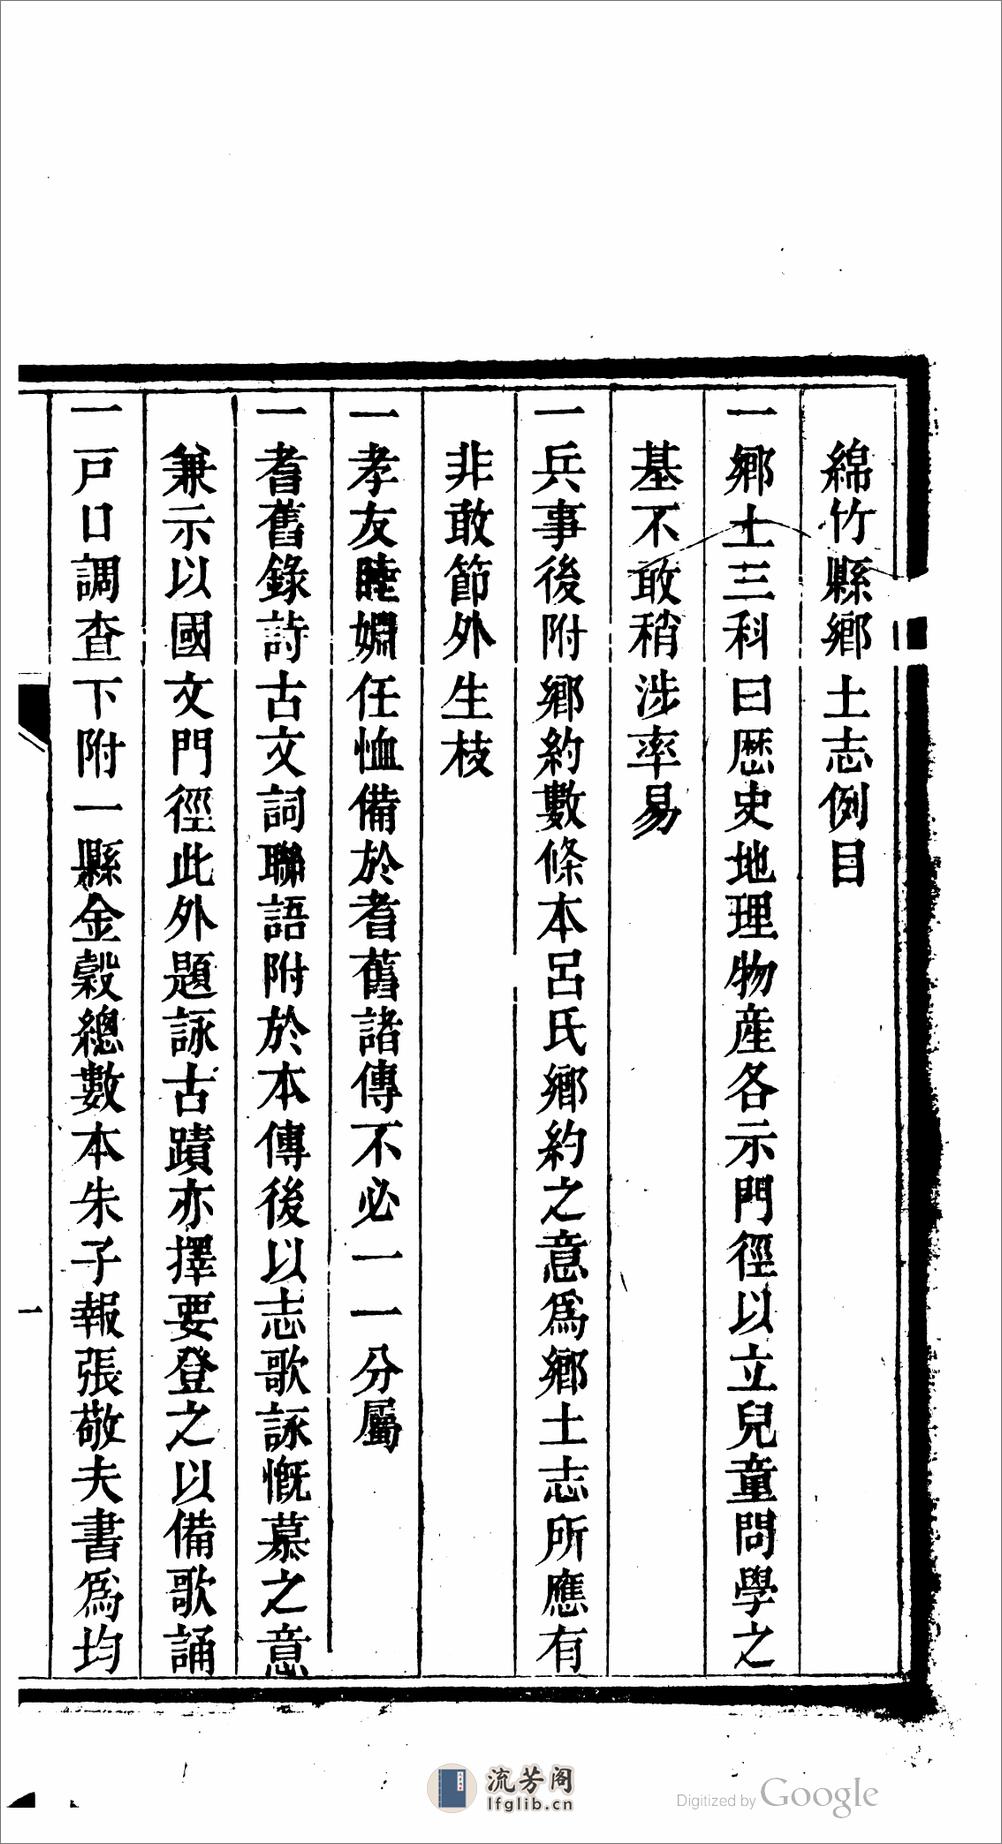 綿竹縣鄉土志例目
一鄉土三科曰歷史地理物產各示門徑以立兒童問學之
基不敢稍涉率易
一兵事後附鄉約數條本呂氏鄉約之意爲鄉土志所應有
非敢節外生枝
一孝友睦婣任恤備於耆舊諸傳不必一一分屬
一耆舊錄詩古文詞聯語附於本傳後以志歌詠慨慕之意
兼示以國文門徑此外題詠古蹟亦擇要登之以備歌誦
一戸口調查下附一縣金穀總數本朱子報張敬夫書爲均
一
流芳阁
lfglib.cn
Digitized by Google